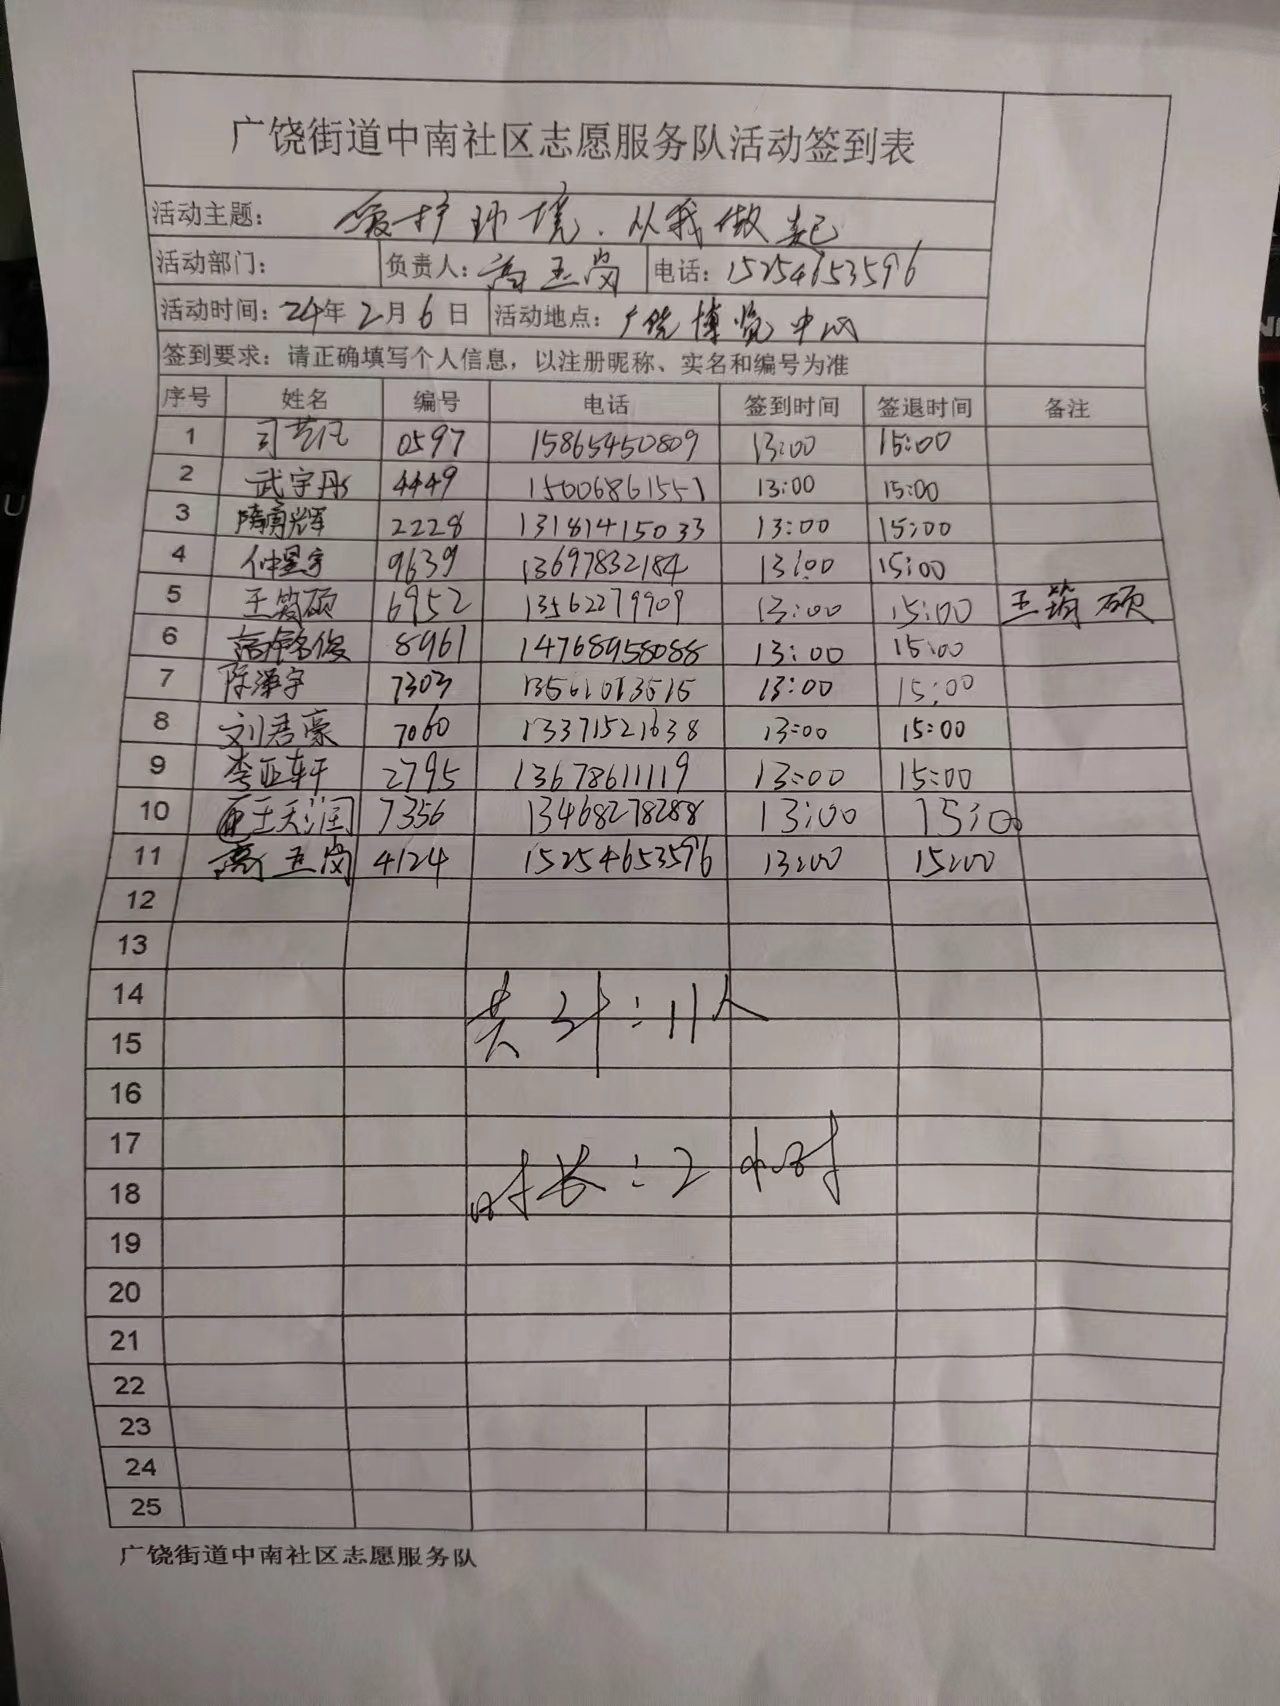 广饶街道中南社区志愿服务队活动签到表
活动主题： 爱护环境．从我做起
活动部门： 负责人：高玉岗 电话：15254653596
活动时间：24年2月6日 活动地点：广饶博览中心
签到要求：请正确填写个人信息，以注册昵称、实名和编号为准
序号 姓名 编号 电话 签到时间 签退时间 备注
1 0597 15865450809 13:00 15:00
2 武宇彤 4449 15006861551 13:00 15:00
3 隋勇辉 2228 13181415033 13:00 15:00
4 仲星宇 9639 13697832184 13:00 15:00
5 王筠硕 6952 13562279909 13:00 15:00 王筠硕
6 8961 14768958088 13:00 15:00
7 陈泽宇 7303 13561013515 13:00 15:00
8 刘君豪 7060 13371521638 13:00 15:00
9 李亚轩 2795 13678611119 13:00 15:00
10 王天润 7356 13468278288 13:00 15:00
11 高玉岗 4124 15254653596 13:00 15:00
12
13
14
共计：11人
15
16
17
时长：2小时
18
19
20
21
22
23
24
25
广饶街道中南社区志愿服务队